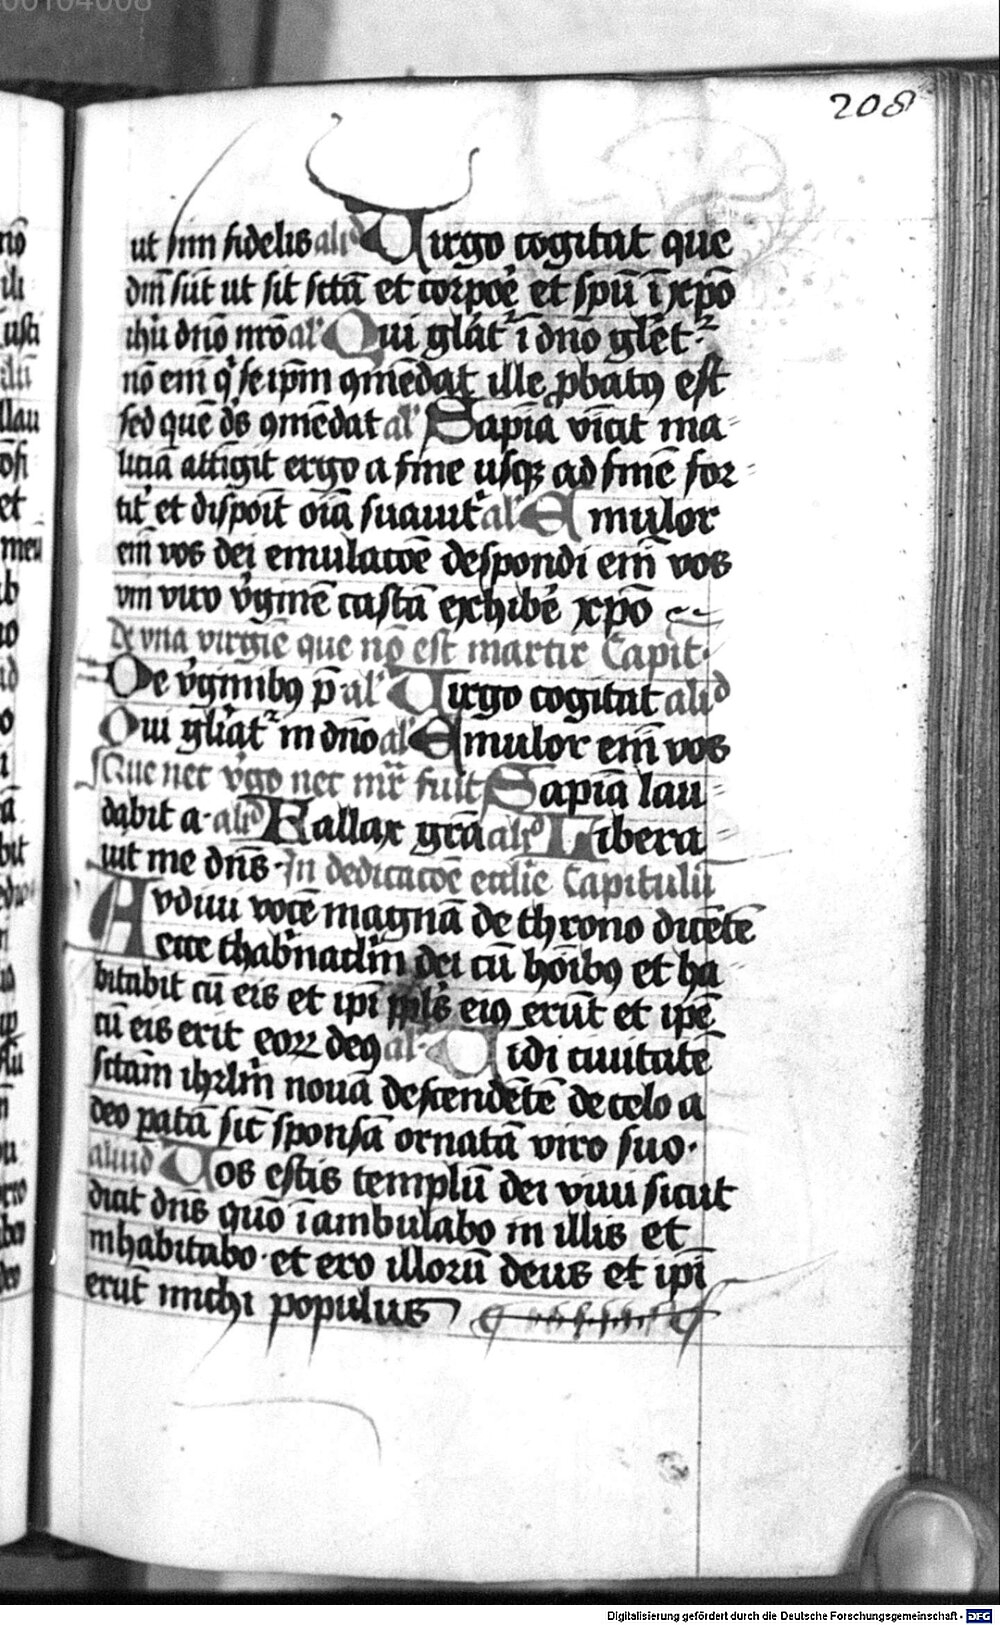 208
ut sim fidelis alid Virgo cogitat que
dñi sūt ut sit sctā et corpoē et spū ī xpō
ihū dnō nrō al' Qui gl'at' ī dno gl'et'
nō em̄ q' se ip̄m 9mēdat ille pbat9 est
sed quē ds 9mēdat al' Sapīa vīcit ma
liciā attigit ergo a fine usq3 ad finē for
tit' et dispoīt oīa suauit' al' Emulor
em̄ vos dei emulacōe despondi em̄ vos
vni viro v'ginē castā exhibe' xpō
De vna virgīe que nō est martir Capit'
De v'ginib9 p̄ al' Virgo cogitat alid
Qui gl'iat' in dnō al' Emulor em̄ vos
Que nec v'go nec mr̄ fuit Sapīa lau
dabit a alid Fallax grā alid Libera
uit me dns In dedicacōe ecclīe Capitulū
Audiui vocē magnā de throno dicētē
ecce thab'naclm̄ dei cū hōib9 et ha
bitabit cū eis et ipī ppls ei9 erūt et ipē
cū eis erit eor2 de9 al' Vidi ciuitatē
sctam ihrlm̄ nouā descendētē de celo a
deo patā sic̄ sponsā ornatā viro suo
aliud Vos estis templū dei viui sicut
dicit dns quō iambulabo in illis et
inhabitabo et ero illorū deus et ipī
erūt michi populus
Digitalisierung gefördert durch die Deutsche Forschungsgemeinschaft - DFG